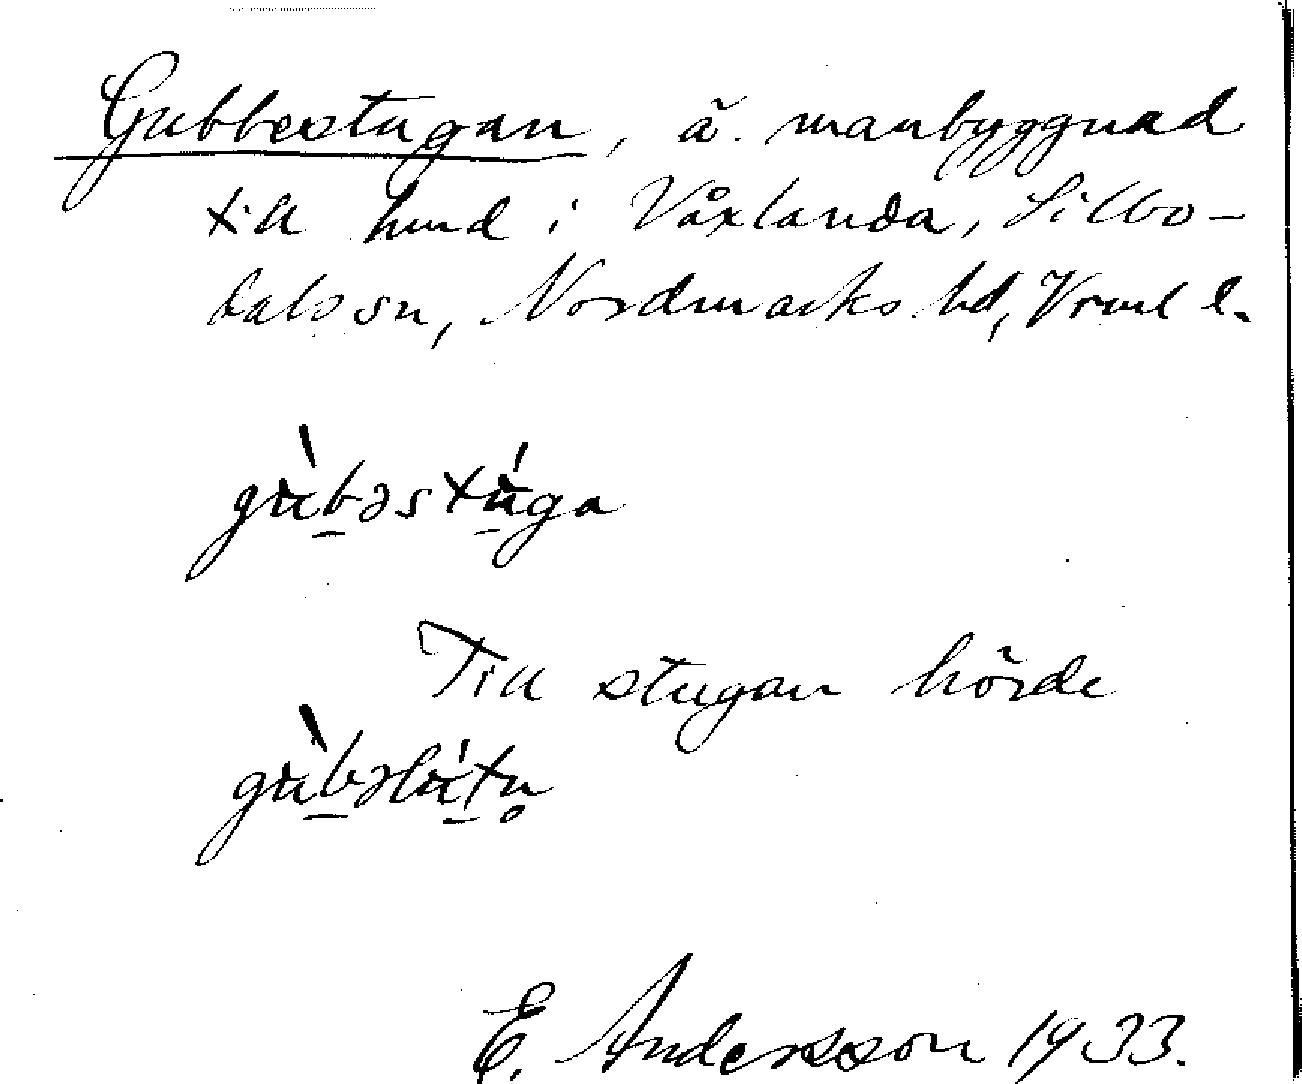 Gubbestugan, ä. manbyggnad
till hmd i Våxlanda, Sillbo-
dals sn, Nordmarks hd, Vrml l.
gùbəstúga
Till stugan hörde
gùbəlútn̥
E. Andersson 1933.